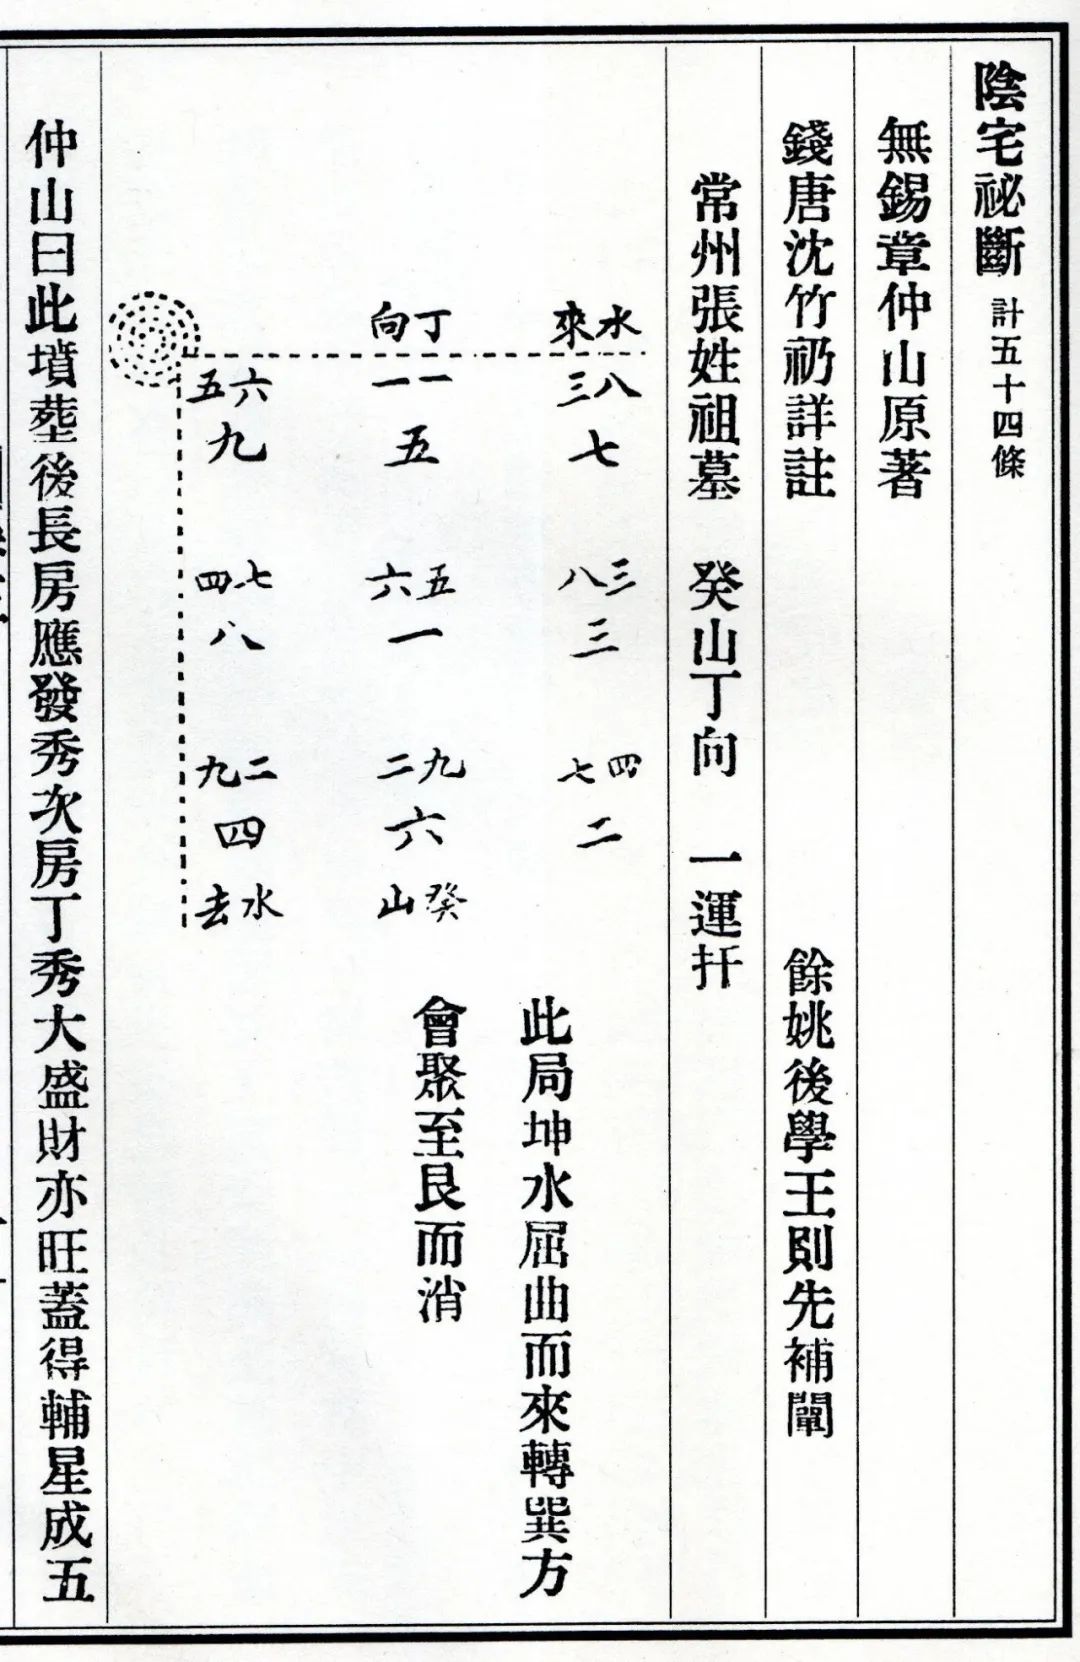 陰宅祕斷 計五十四條
無錫章仲山原著
錢唐沈竹礽詳註 餘姚後學王則先補闡
常州張姓祖墓 癸山丁向 一運扦
水來
八三
七
三八
三
四七
二
丁向
一一
五
五六
一
九二
六
癸山
六五
九
七四
八
二九
四
水去
此局坤水屈曲而來轉巽方
會聚至艮而消
仲山曰此墳塟後長房應發秀次房丁秀大盛財亦旺蓋得輔星成五